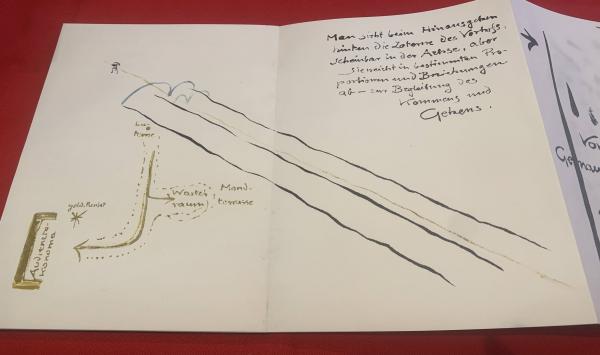 Man sieht beim Hinausgehen
hinten die Laterne des Vorhofs,
scheinbar in der Achse, aber
sie reicht in bestimmten Pro-
portionen und Beziehungen
ab – zur Begleitung des
Kommens und
Gehens.
La-
terne
Warte
raum
Mond-
terrasse
gold.
Audienz-
Vor